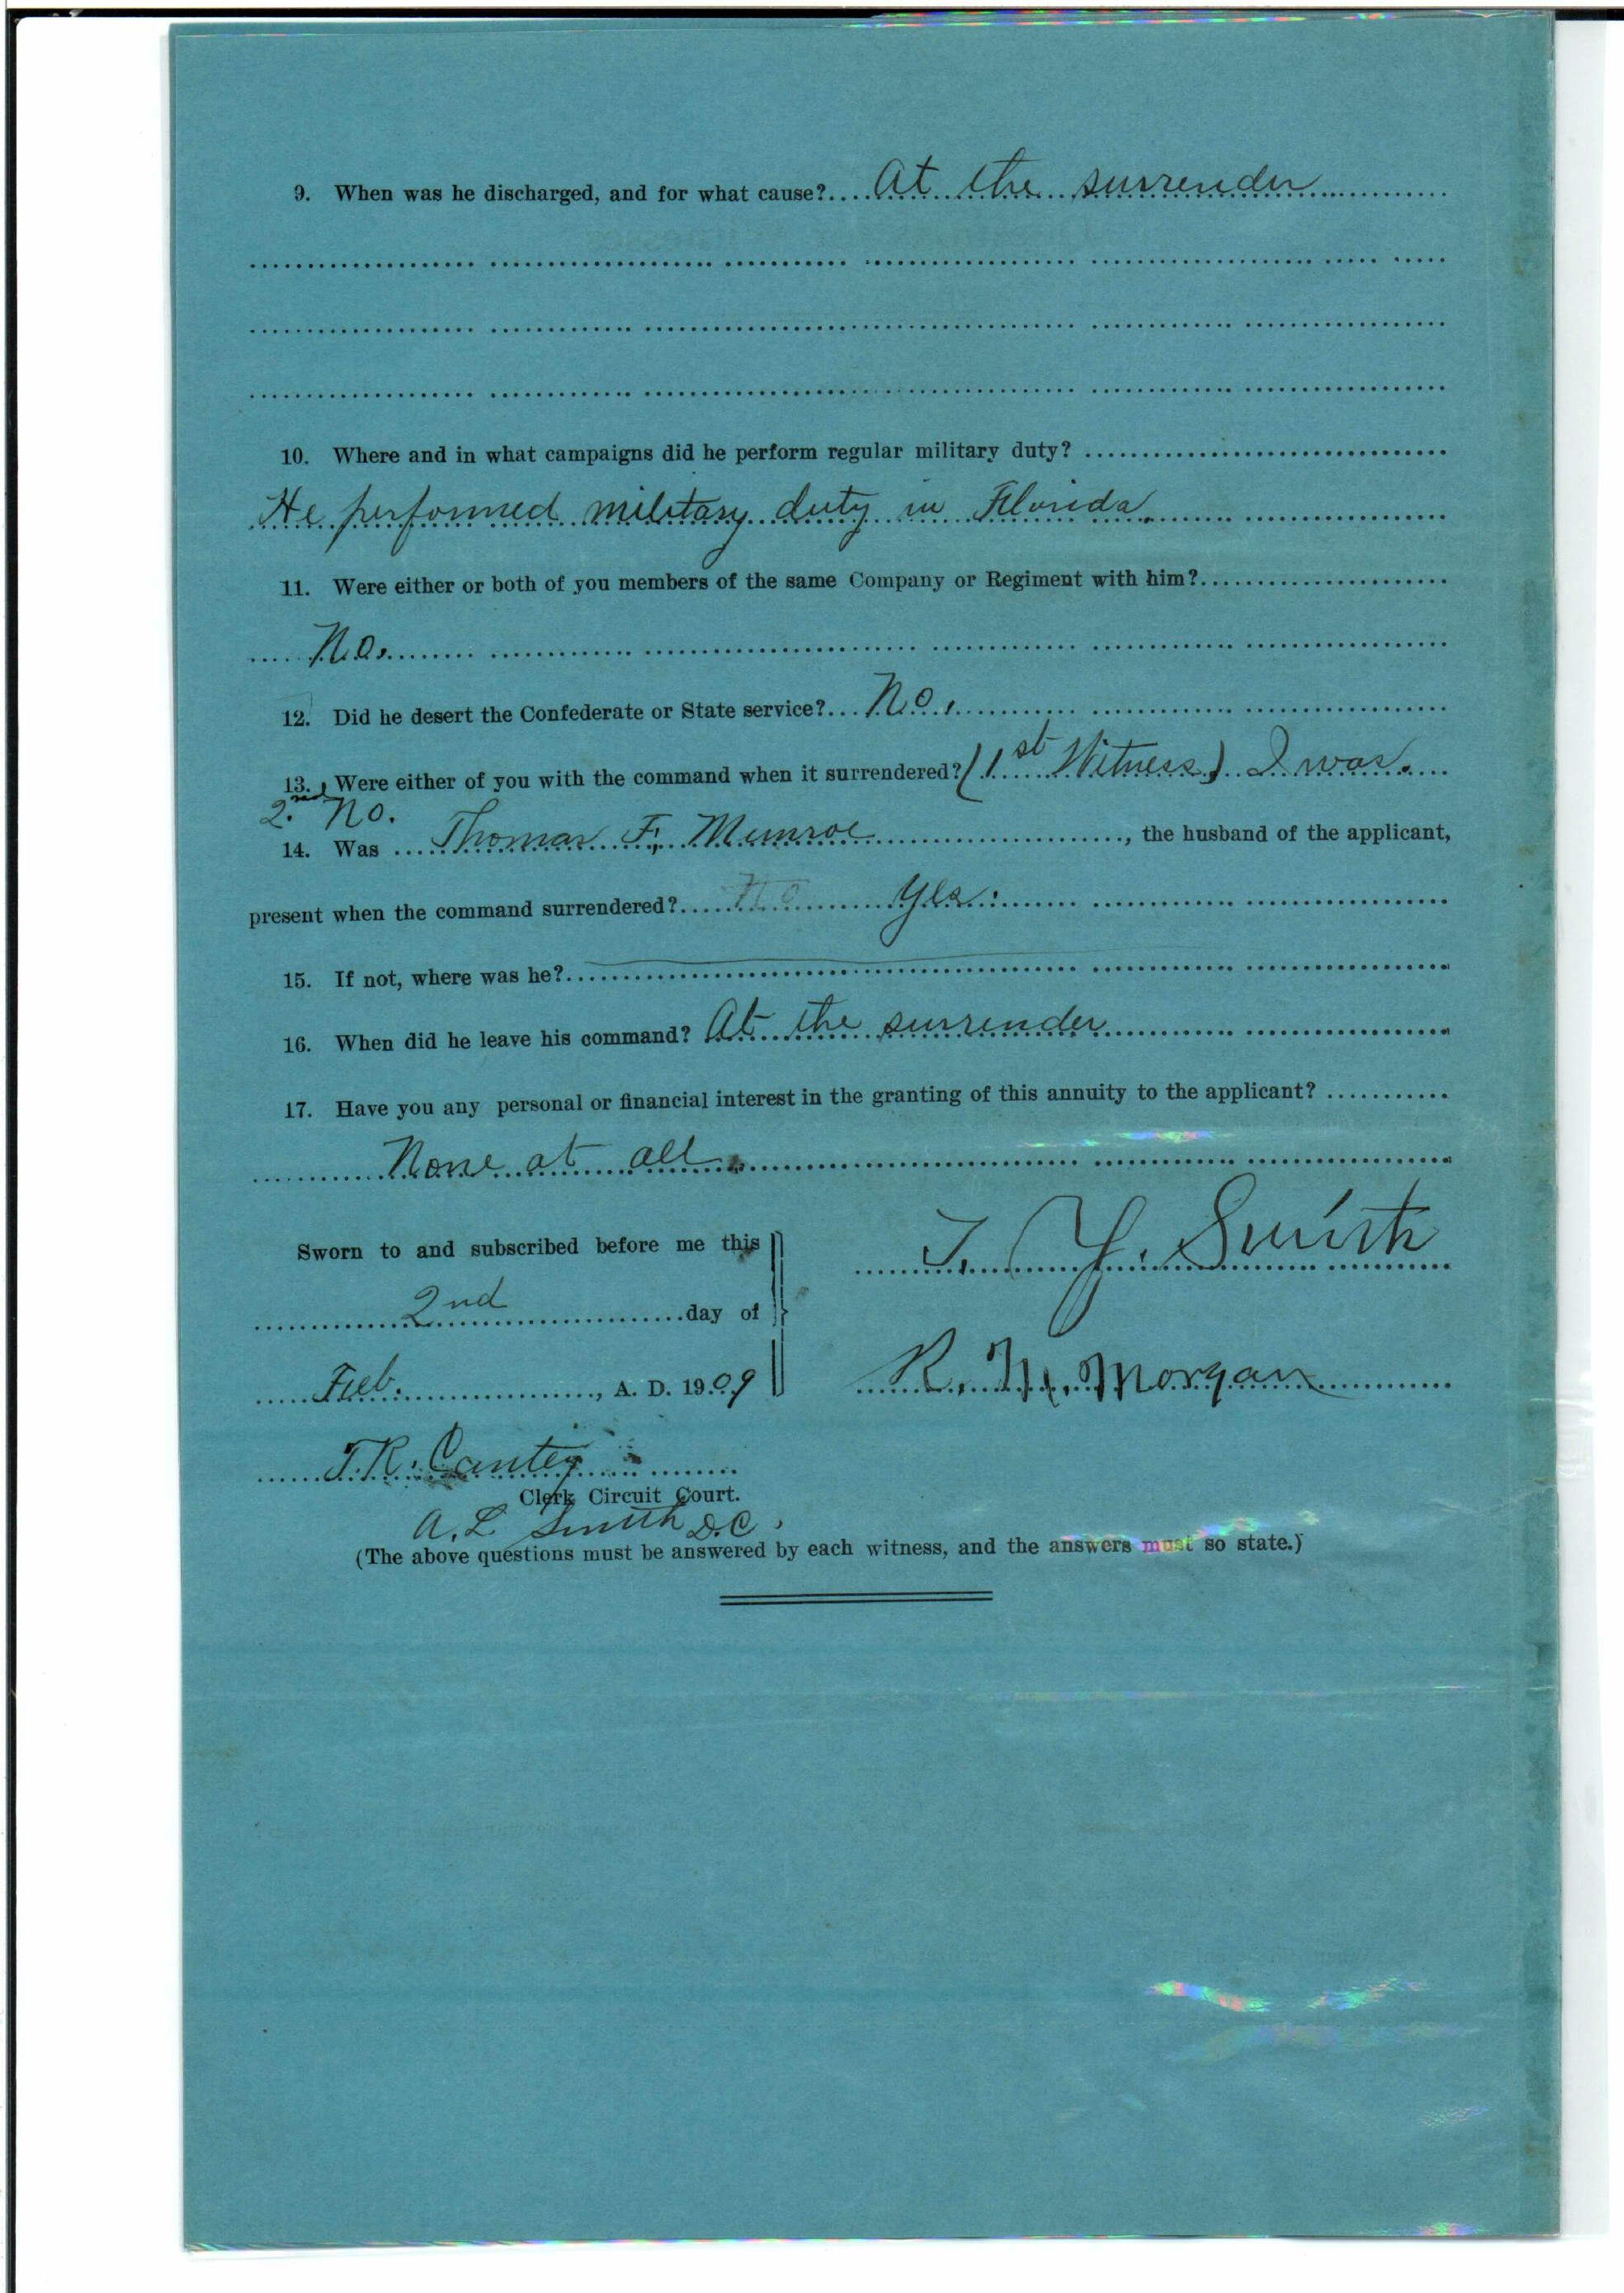 9. When was he discharged, and for what cause? At the surrender
10. Where and in what campaigns did he perform regular military duty?
He performed military duty in Florida.
11. Were either or both of you members of the same Company or Regiment with him?
No.
12. Did he desert the Confederate or State service? No.
13. Were either of you with the command when it surrendered? (1st Witness) I was.
2nd No.
14. Was Thomas F. Munroe, the husband of the applicant,
present when the command surrendered? No Yes.
15. If not, where was he?
16. When did he leave his command? At the surrender
17. Have you any personal or financial interest in the granting of this annuity to the applicant?
None at all.
Sworn to and subscribed before me this
T. Y. Smith
2nd day of
Feb., A. D. 1909
R. M. Morgan
T. R. Cantey
Clerk Circuit Court.
A. L. Smith D.C.
(The above questions must be answered by each witness, and the answers must so state.)